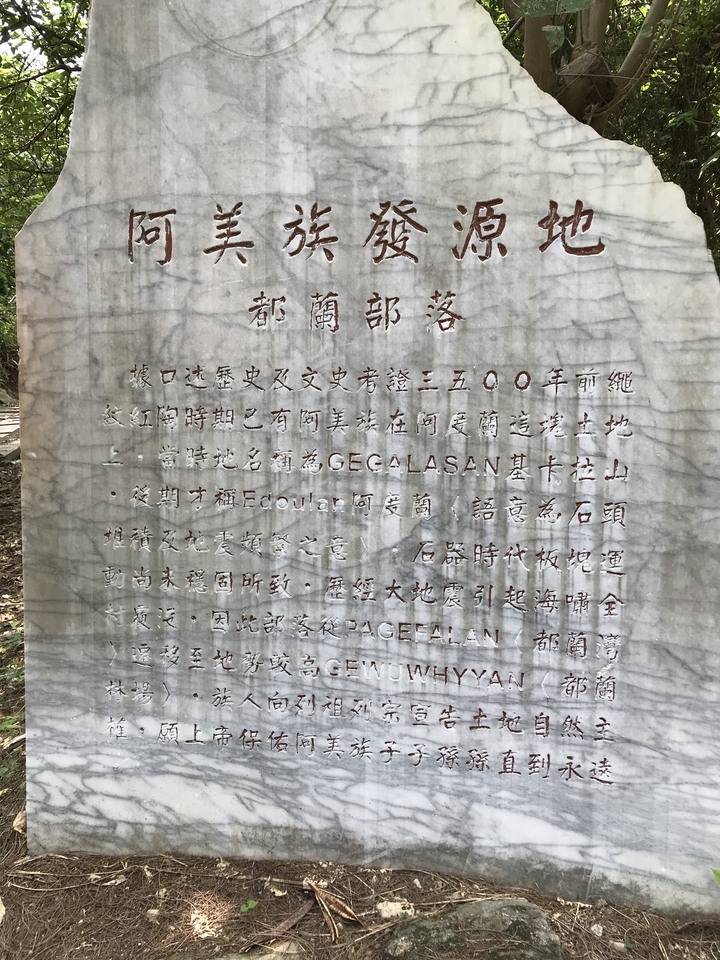 阿美族發源地
都蘭部落
據口述歷史及文史考證三五00年前繩
紋紅陶時期已有阿美族在阿度蘭這塊土地
上．當時地名稱為GEGALASAN基卡拉山
．後期才稱Edoulan阿度蘭〈語意為石頭
堆積及地震頻繁之意〉．石器時代板塊運
動尚未穩固所致．歷經大地震引起海嘯全
村廢沒．因此部落從PAGEFALAN〈都蘭灣
〉遷移至地勢較高GEWUWHYYAN〈都蘭
林場〉．族人向列祖列宗宣告土地自然主
權．願上帝保佑阿美族子子孫孫直到永遠